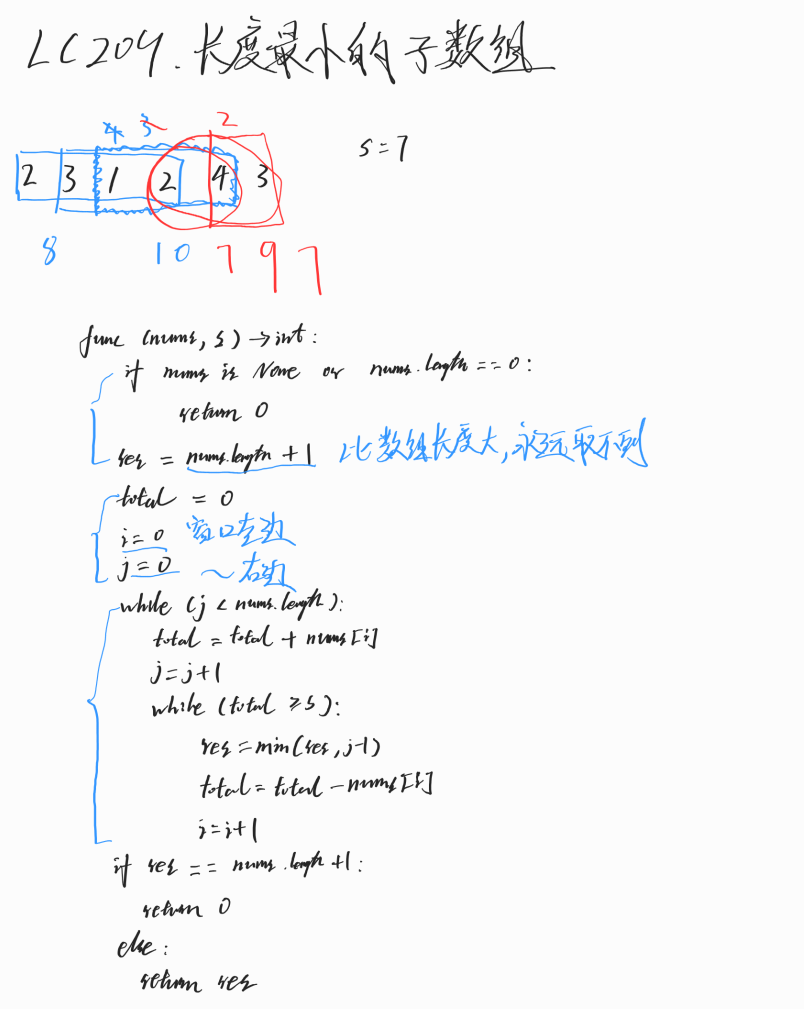 LC209.长度最小的子数组
4 3 2
s=7
2 3 1 2 4 3
8 10 7 9 7
func (nums, s) →int:
if nums is None or nums.length == 0:
return 0
res = nums.length +1 比数组长度大,永远取不到
total = 0
i=0 窗口左边
j=0 ~右边
while (j < nums.length):
total = total + nums[i]
j=j+1
while (total ≥s):
res=min(res,j-1)
total=total-nums[i]
i=i+1
if res == nums.length +1:
return 0
else:
return res